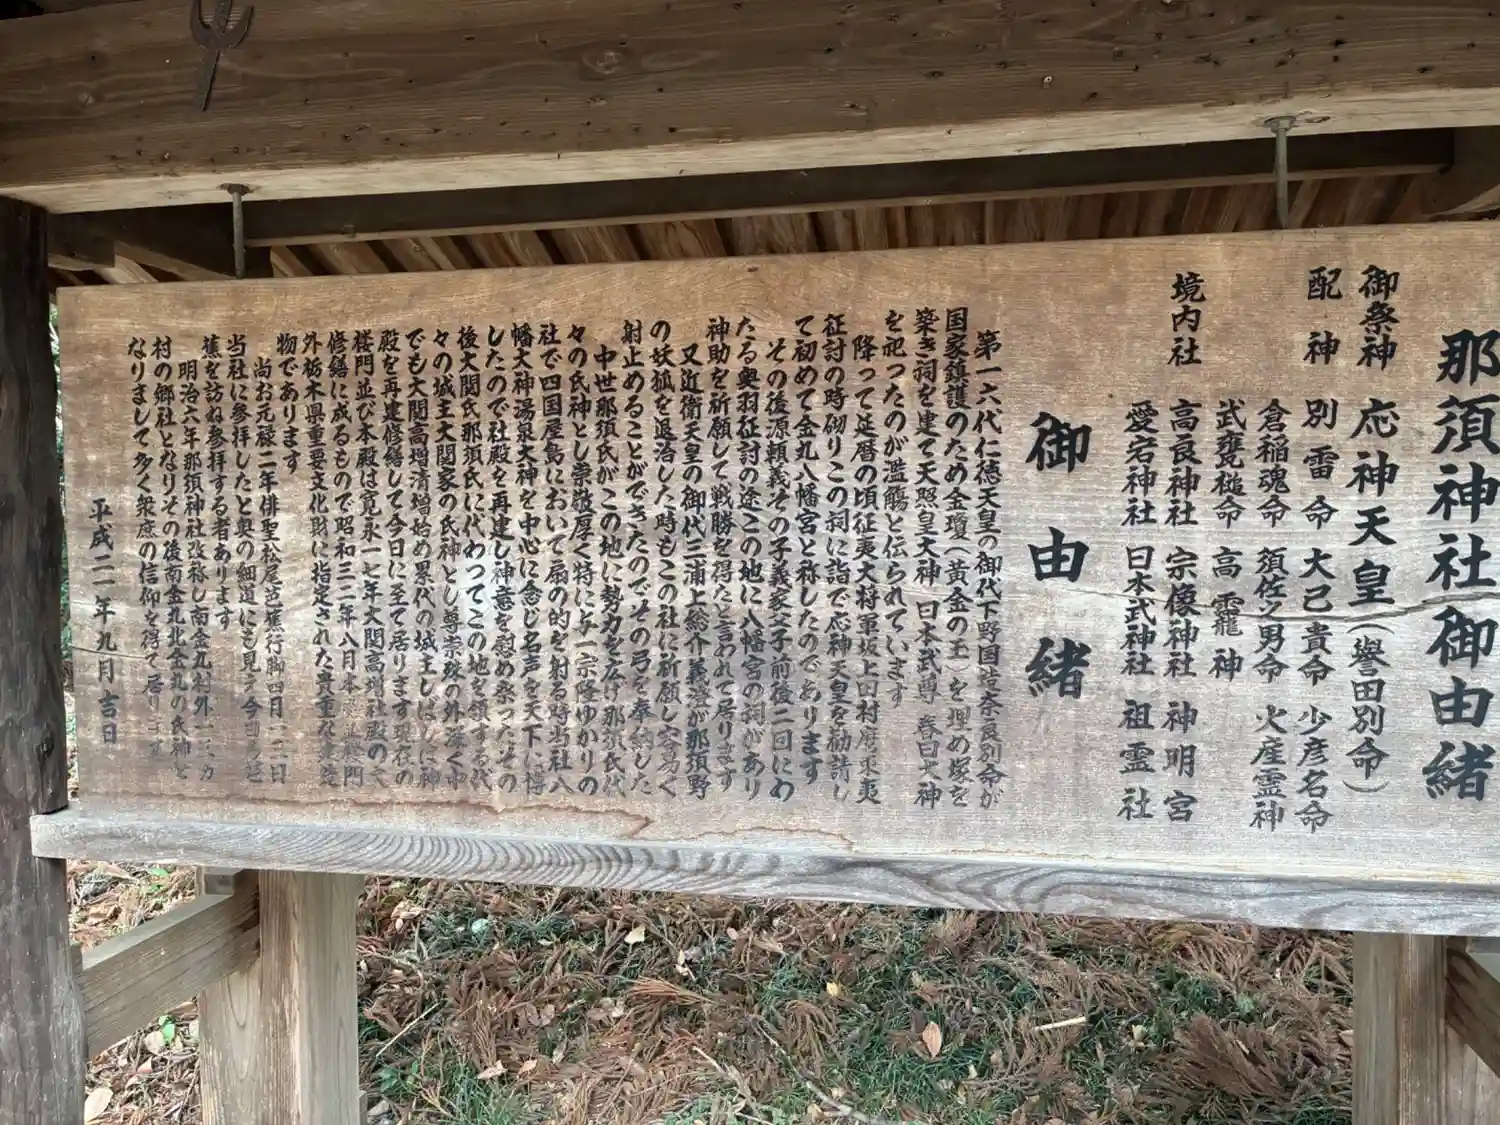 那須神社御由緒
御祭神 応神天皇（誉田別命）
配神 別雷命 大己貴命 少彦名命
倉稲魂命 須佐之男命 火産霊神
武甕槌命 高龗神
境内社 高良神社 宗像神社 神明宮
愛宕神社 日本武神社 祖霊社
御由緒
第一六代仁徳天皇の御代下野国造奈良別命が
国家鎮護のため金瓊（黄金の玉）を埋め塚を
築き祠を建て天照皇大神 日本武尊 春日大神
を祀ったのが濫觴と伝られています
降って延暦の頃征夷大将軍坂上田村麿東夷
征討の時砌りこの祠に詣で応神天皇を勧請し
て初めて金丸八幡宮と称したのであります
その後源頼義その子義家父子前後二回にわ
たる奥羽征討の途この地に八幡宮の祠があり
神助を祈願して戦勝を得たと言われて居ります
又近衛天皇の御代三浦上総介義澄が那須野
の妖狐を退治した時もこの社に祈願し容易く
射止めることができたのでその弓を奉納した
中世那須氏がこの地に勢力を広げ那須氏代
々の氏神とし崇敬厚く特に与一宗隆ゆかりの
社で四国屋島において扇の的を射る時当社八
幡大神湯泉大神を中心に念じ名声を天下に博
したので社殿を再建し神意を慰め奉ったその
後大関氏那須氏に代わってこの地を領する代
々の城主大関家の氏神とし尊崇殊の外深く中
でも大関高増清増始め累代の城主しばしば神
殿を再建修繕して今日に至て居ります現在の
楼門並び本殿は寛永一七年大関高増社殿の大
修繕に成るもので昭和三二年八月本殿並楼門
外栃木県重要文化財に指定された貴重な建造
物であります
尚お元禄二年俳聖松尾芭蕉行脚四月一二日
当社に参拝したと奥の細道にも見え今日も芭
蕉を訪ね参拝する者あります
明治六年那須神社改称し南金丸村外一三カ
村の郷社となりその後南金丸北金丸の氏神と
なりまして多く衆庶の信仰を得て居ります
平成二一年九月吉日